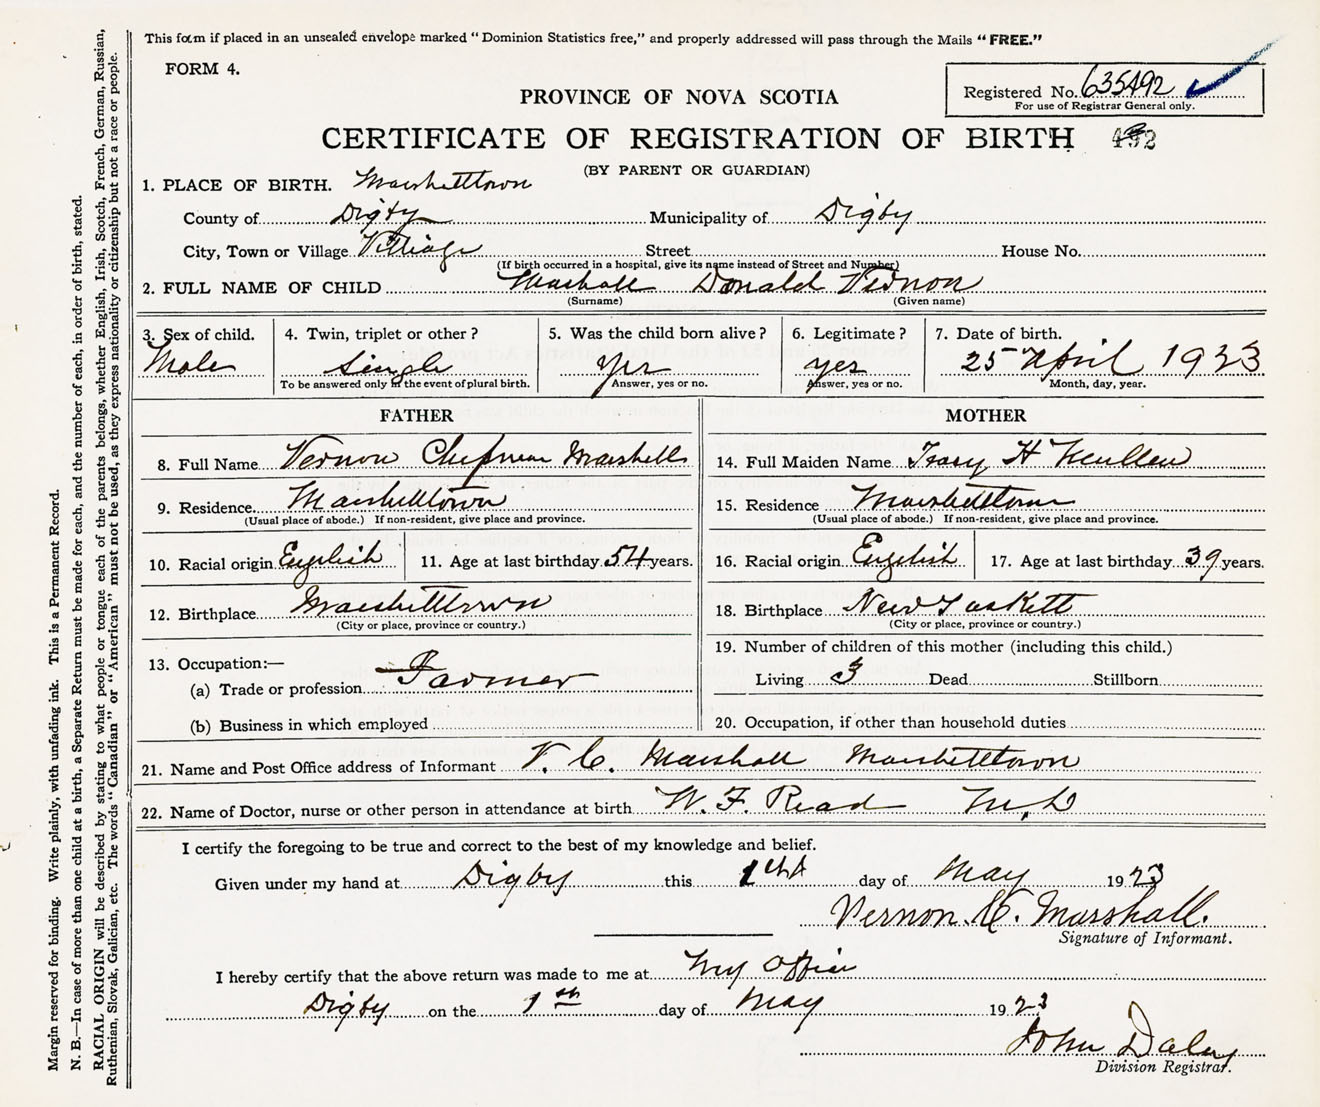 This form if placed in an unsealed envelope marked "Dominion Statistics free," and properly addressed will pass through the Mails "FREE."
FORM 4.
Registered No. 635492
For use of Registrar General only.
PROVINCE OF NOVA SCOTIA
CERTIFICATE OF REGISTRATION OF BIRTH
(BY PARENT OR GUARDIAN)
1. PLACE OF BIRTH. Marshalltown
County of Digby Municipality of Digby
City, Town or Village Village Street House No.
(If birth occurred in a hospital, give its name instead of Street and Number)
2. FULL NAME OF CHILD Marshall Donald Vernon
(Surname) (Given name)
3. Sex of child. 4. Twin, triplet or other? 5. Was the child born alive? 6. Legitimate? 7. Date of birth.
Male Single Yes yes 25 April 1923
To be answered only in the event of plural birth. Answer, yes or no. Answer, yes or no. Month, day, year.
FATHER
8. Full Name Vernon Chipman Marshall
9. Residence Marshalltown
(Usual place of abode.) If non-resident, give place and province.
10. Racial origin English 11. Age at last birthday 54 years.
12. Birthplace Marshalltown
(City or place, province or country.)
13. Occupation:—
(a) Trade or profession Farmer
(b) Business in which employed
MOTHER
14. Full Maiden Name H
15. Residence Marshalltown
(Usual place of abode.) If non-resident, give place and province.
16. Racial origin English 17. Age at last birthday 39 years.
18. Birthplace New Tuskett
(City or place, province or country.)
19. Number of children of this mother (including this child.)
Living 3 Dead Stillborn
20. Occupation, if other than household duties
21. Name and Post Office address of Informant V. C. Marshall Marshalltown
22. Name of Doctor, nurse or other person in attendance at birth W. F. Read M.D
I certify the foregoing to be true and correct to the best of my knowledge and belief.
Given under my hand at Digby this day of May 1923
Vernon C. Marshall.
Signature of Informant.
I hereby certify that the above return was made to me at my office
Digby on the 1th day of May 1923
John Daley
Division Registrar.
Margin reserved for binding. Write plainly, with unfading ink. This is a Permanent Record.
N. B.—In case of more than one child at a birth, a Separate Return must be made for each, and the number of each, in order of birth, stated.
RACIAL ORIGIN will be described by stating to what people or tongue each of the parents belongs, whether English, Irish, Scotch, French, German, Russian,
Ruthenian, Slovak, Galician, etc. The words "Canadian" or "American" must not be used, as they express nationality or citizenship but not a race or people.